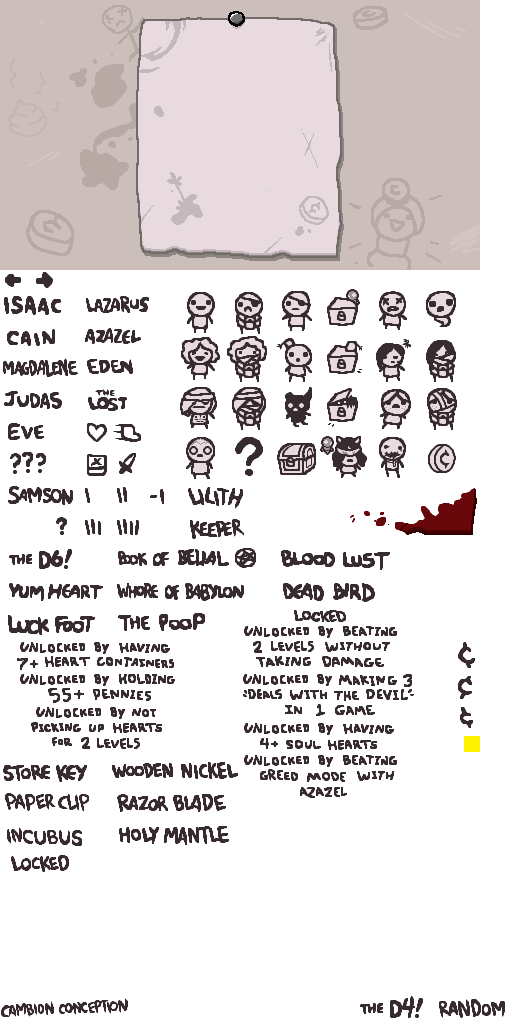 ISAAC LAZARUS
CAIN AZAZEL
MAGDALENE EDEN
JUDAS THE LOST
EVE
??? ?
SAMSON I II -I LILITH
? III IIII KEEPER
THE D6! BOOK OF BELIAL BLOOD LUST
YUM HEART WHORE OF BABYLON DEAD BIRD
LUCK FOOT THE POOP
LOCKED
UNLOCKED BY HAVING
7+ HEART CONTAINERS
UNLOCKED BY HOLDING
55+ PENNIES
UNLOCKED BY NOT
PICKING UP HEARTS
FOR 2 LEVELS
UNLOCKED BY BEATING
2 LEVELS WITHOUT
TAKING DAMAGE
UNLOCKED BY MAKING 3
"DEALS WITH THE DEVIL"
IN 1 GAME
UNLOCKED BY HAVING
4+ SOUL HEARTS
UNLOCKED BY BEATING
GREED MODE WITH
AZAZEL
¢
¢
¢
STORE KEY WOODEN NICKEL
PAPER CLIP RAZOR BLADE
INCUBUS HOLY MANTLE
LOCKED
CAMBION CONCEPTION THE D4! RANDOM